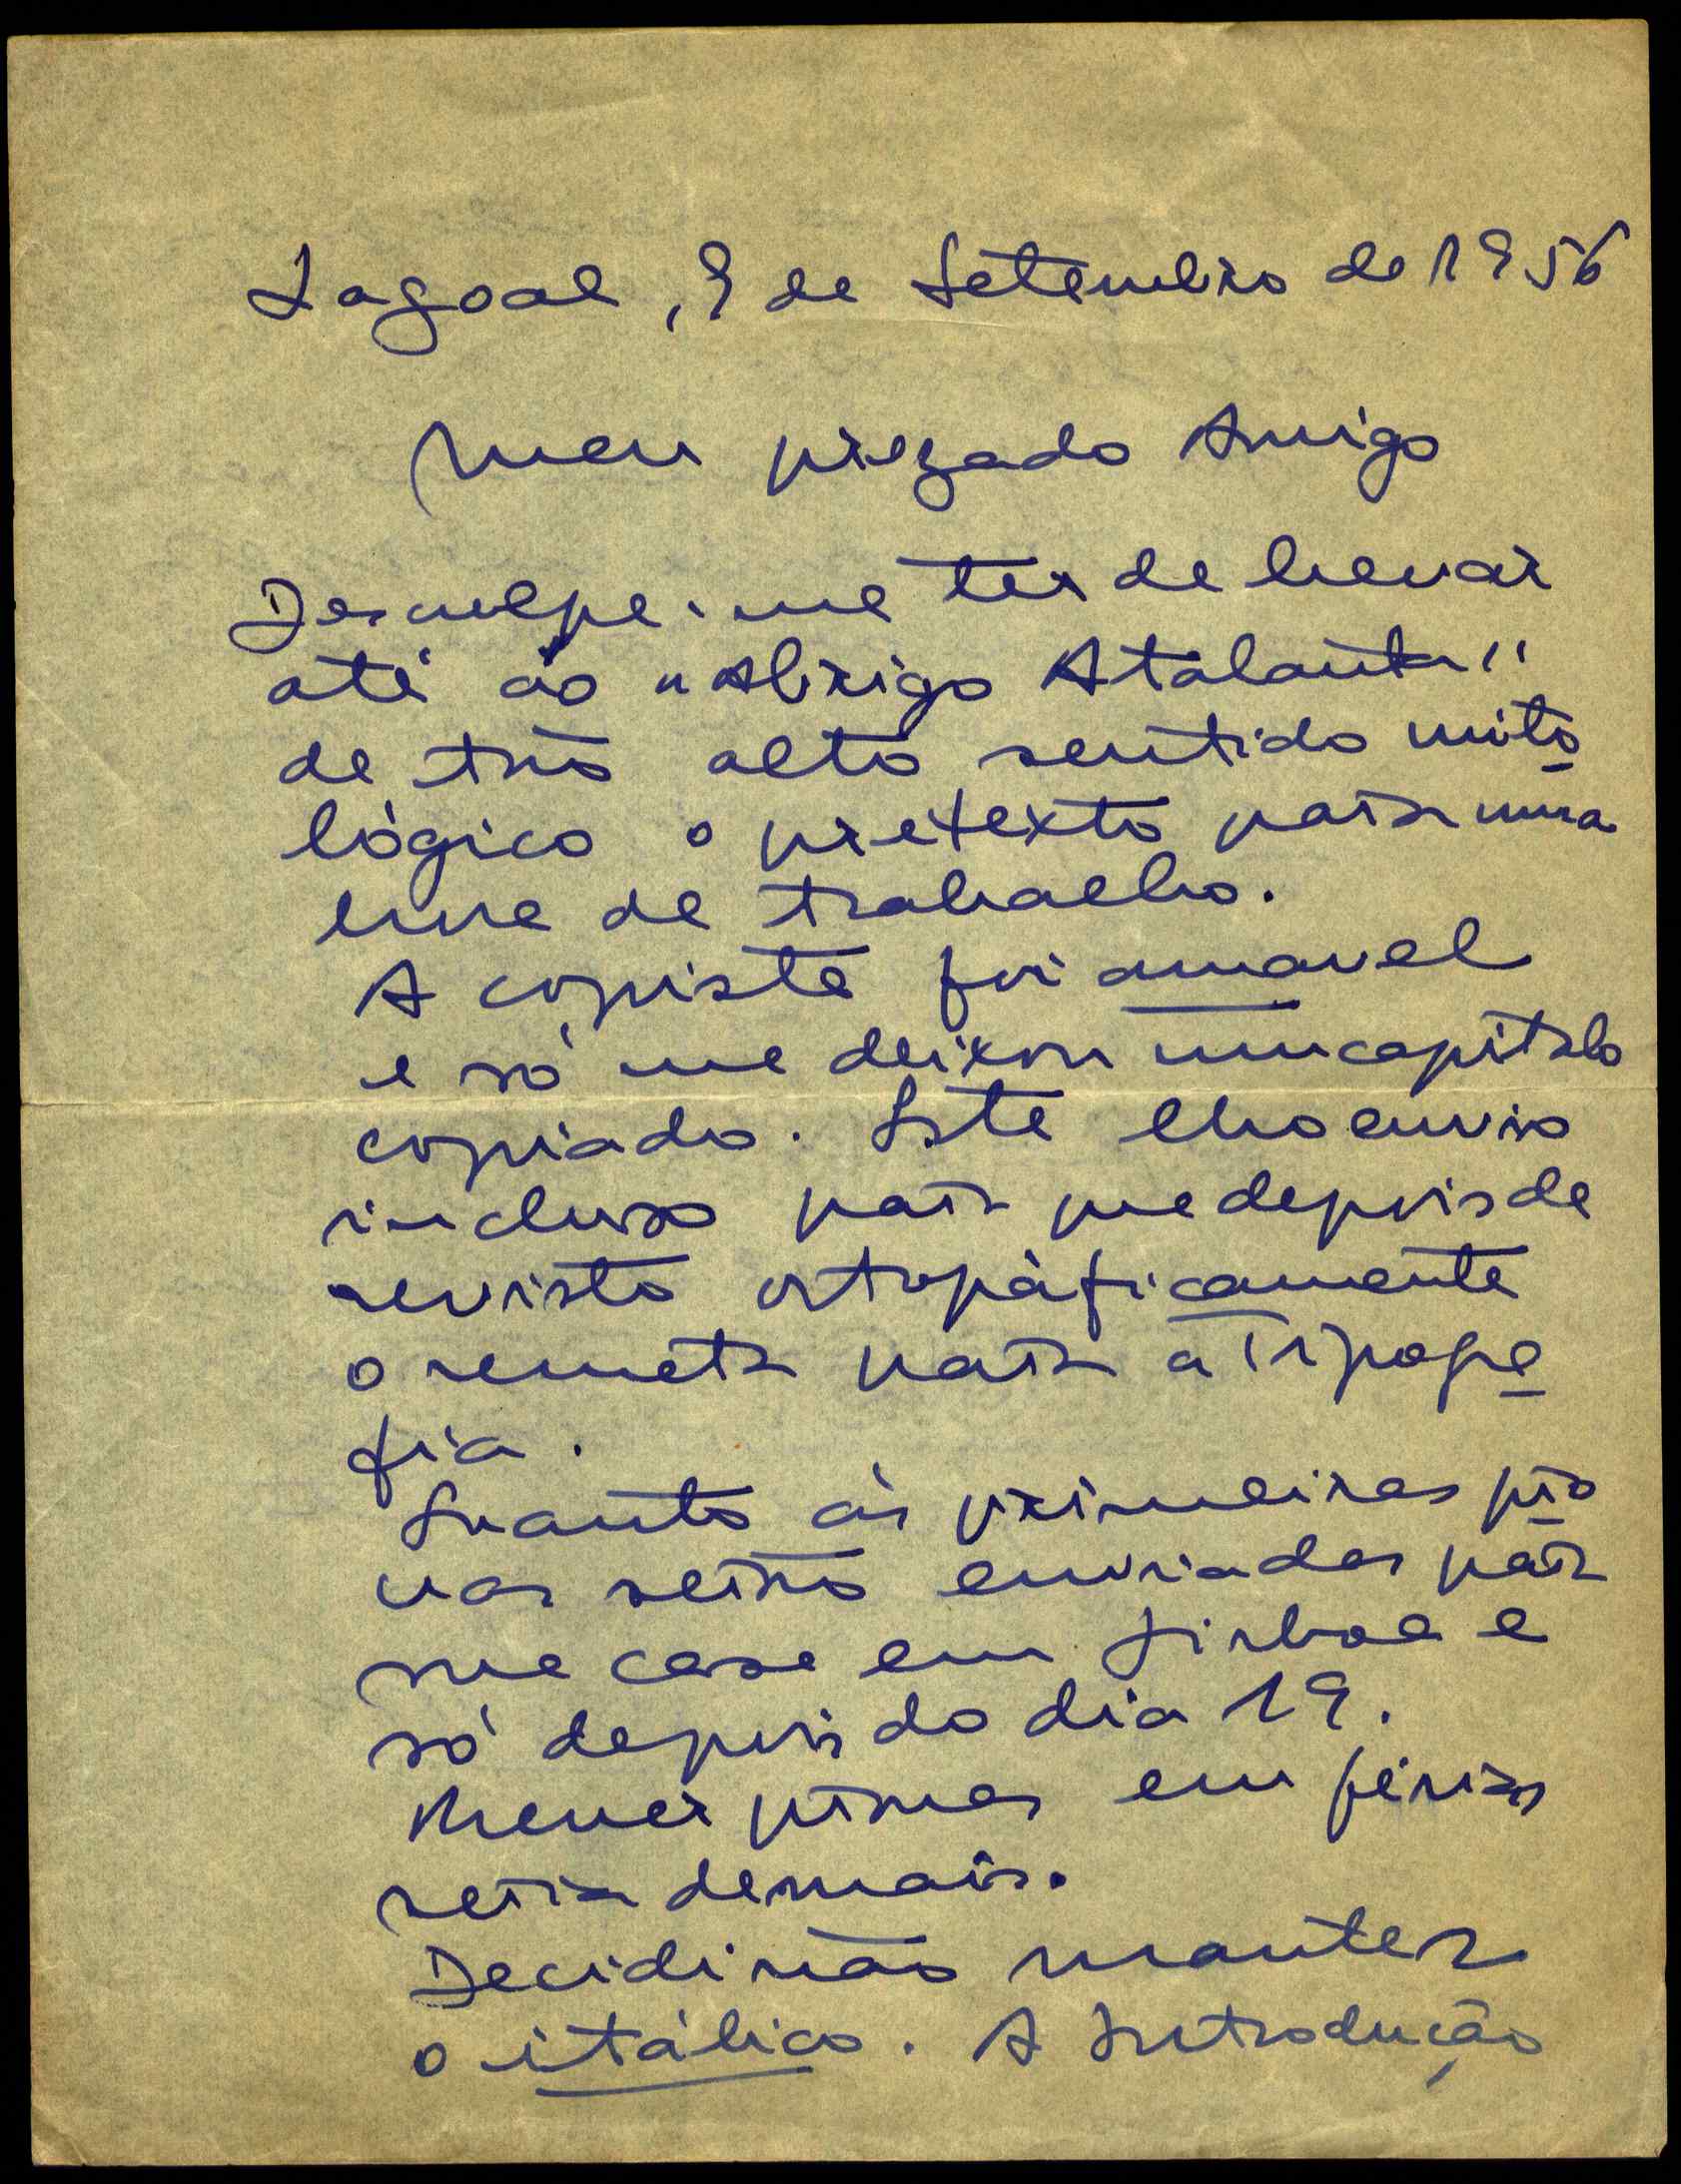 Lagoal, 9 de Setembro de 1956
Meu prezado Amigo
Desculpe-me ter de levar
até ao "Abrigo Atalanta"
de tão alto sentido mito
lógico o pretexto para uma
hora de trabalho.
A copista foi amavel
e só me deixou um capitulo
copiado. Este lho envio
incluso para que depois de
revisto ortográficamente
o remeta para a Tipogra
fia.
Quanto às primeiras pro
vas serão enviadas para
sua casa em Lisboa e
só depois do dia 19.
Mever provas em férias
seria demais.
Decidi não manter
o itálico. A Introdução